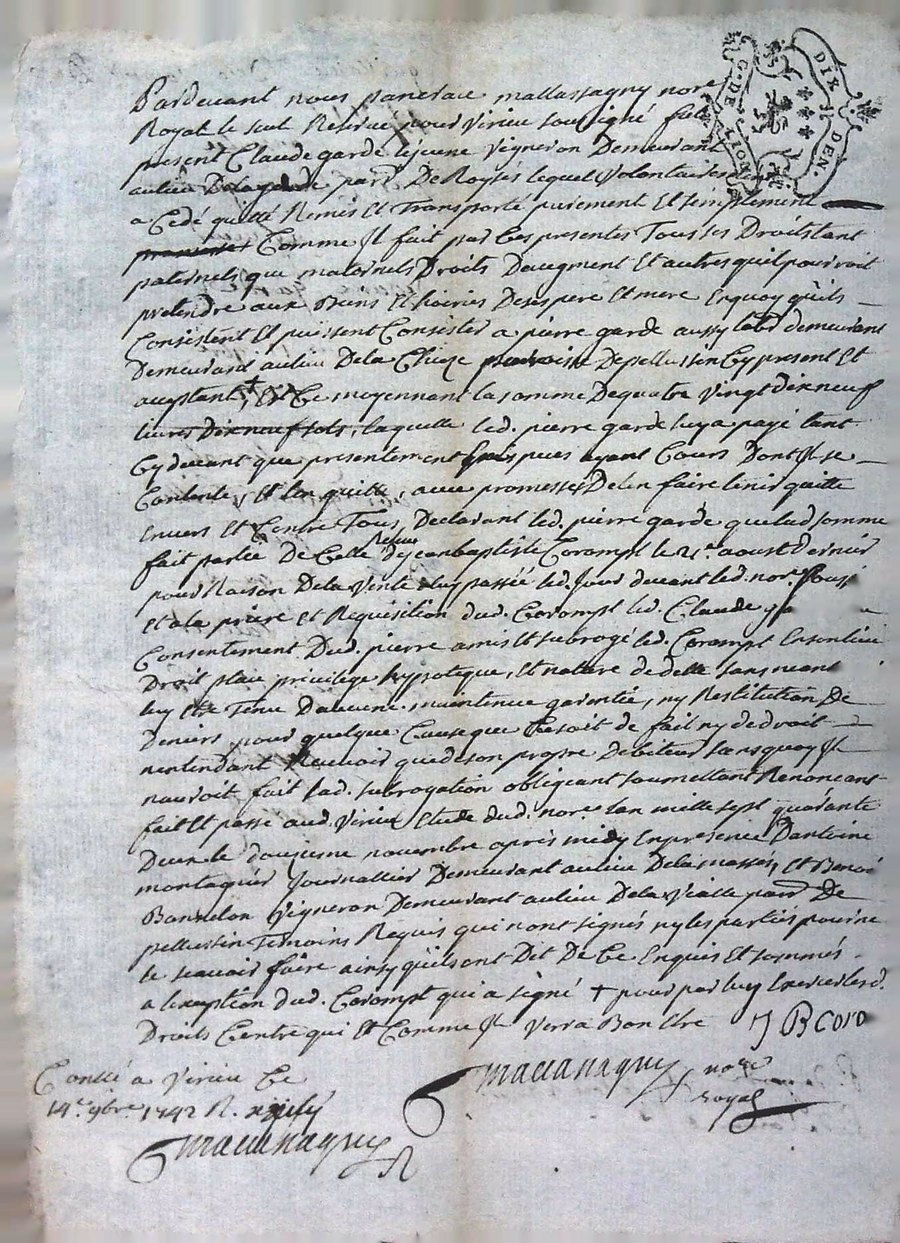 G. DE LION
DIX DEN.
Pardevant nous pancrace mallassagny nore
Royal le seul Reservé pour Virieu soussigné fut
present Claude garde lejeune Vigneron Demeurant
aulieu Delagarde par. De Roysés lequel Volontairement
a Cedé quitté Remis Et Transporté purement Et simplement
Comme Il fait par Ces presentes Tous ses Droits tant
paternels que maternels Droits Daugment Et autres quil pourroit
pretendre aux Biens Et hoiries De ses pere Et mere Enquoy quils
Consistent Et puissent Consister a pierre garde aussy demeurant
Demeurant aulieu Dela Chieze paroisse Depellussin Cy present Et
aceptant, + Et Ce moyennant la somme Dequatre Vingt Dixneuf
livres Dixneuf sols, laquelle led. pierre garde luy a payé tant
Cy devant que presentement ayant Cours Dont Il se
Contente, Et len quitte, avec promesse De len faire tenir quitte
Envers Et Contre Tous, Declarant led. pierre garde que lad. somme
fait partie De Celle Reçue de jeanbaptiste Corompt le 21e aoust dernier
pour Raison Dela Vente passée led. Jour devant led. nore.
Et ala priere Et Requisition dud. Corompt led. Claude
Consentement Dud. pierre a mis Et subrogé led. Corompt En son lieu
Droit place privilege hypoteque, Et nature de dette sans neant
luy Etre Tenu Daucune maintenue garentie, ny Restitution De
Deniers pour quelque Cause que Ce soit de fait ny de droit
nentendant Recevoir que de son propre Debiteur sans quoy Il
nauroit fait lad. subrogation obligeant soumettant Renoncant
fait Et passé aud. Virieu Etude dud. nore. lan mille sept quarante
Deux le douzieme novembre après midy En presence Dantoine
montagnier Journallier Demeurant aulieu Dela Et
Bonnelon Vigneron Demeurant aulieu Dela Vialle parr. De
pellussin Temoins Requis qui nont signés ny les parties pour ne
le scavoir faire ainsy quils ont Dit De Ce Enquis Et sommés
a lexeption dud. Corompt qui a signé + pour par luy Exercer lesd.
Droits Contre qui Et Comme Il Verra Bon Etre J B Coro
nore
royal
Conllé a Virieu Ce
14e 9bre 1742 R.